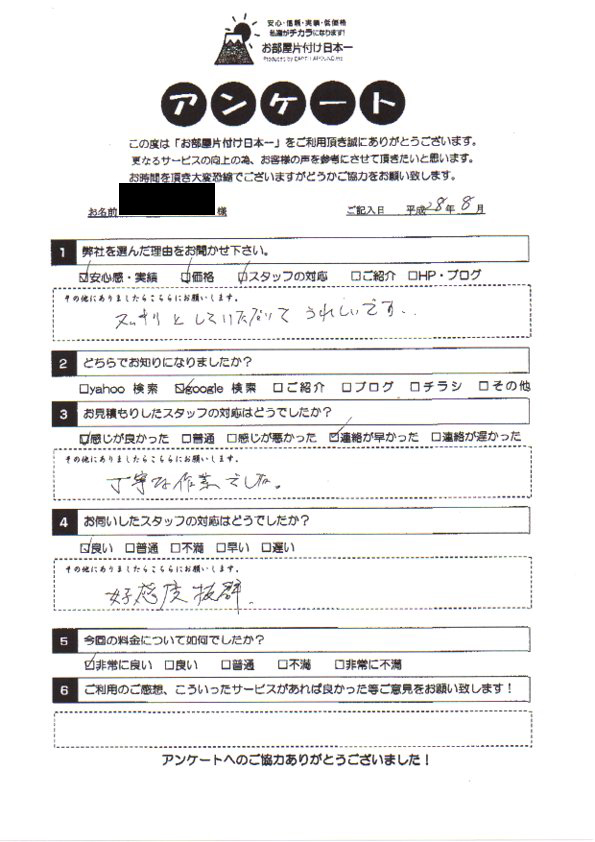 安心・信頼・実績・低価格
私達がチカラになります!
お部屋片付け日本一
アンケート
この度は「お部屋片付け日本一」をご利用頂き誠にありがとうございます。
更なるサービスの向上の為、お客様の声を参考にさせて頂きたいと思います。
お時間を頂き大変恐縮でございますがどうかご協力をお願い致します。
お名前 様 ご記入日 平成28年8月
1 弊社を選んだ理由をお聞かせ下さい。
☑安心感・実績 ☑価格 ☑スタッフの対応 □ご紹介 □HP・ブログ
その他にありましたらこちらにお願いします。
スッキリとしていただいて うれしいです..
2 どちらでお知りになりましたか?
□yahoo 検索 ☑google 検索 □ご紹介 □ブログ □チラシ □その他
3 お見積もりしたスタッフの対応はどうでしたか?
☑感じが良かった □普通 □感じが悪かった ☑連絡が早かった □連絡が遅かった
その他にありましたらこちらにお願いします。
丁寧な作業でした。
4 お伺いしたスタッフの対応はどうでしたか?
☑良い □普通 □不満 □早い □遅い
その他にありましたらこちらにお願いします。
好感度抜群.
5 今回の料金について如何でしたか?
☑非常に良い □良い □普通 □不満 □非常に不満
6 ご利用のご感想、こういったサービスがあれば良かった等ご意見をお願い致します!
アンケートへのご協力ありがとうございました!